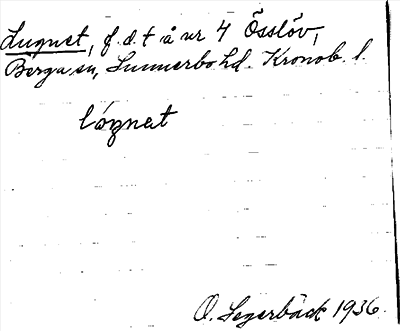 Lugnet, f.d.t å nr 4 Össlöv,
Berga sn, Sunnerbo hd. Kronob. l.
lóŋnat
O. Segerbäck 1936.